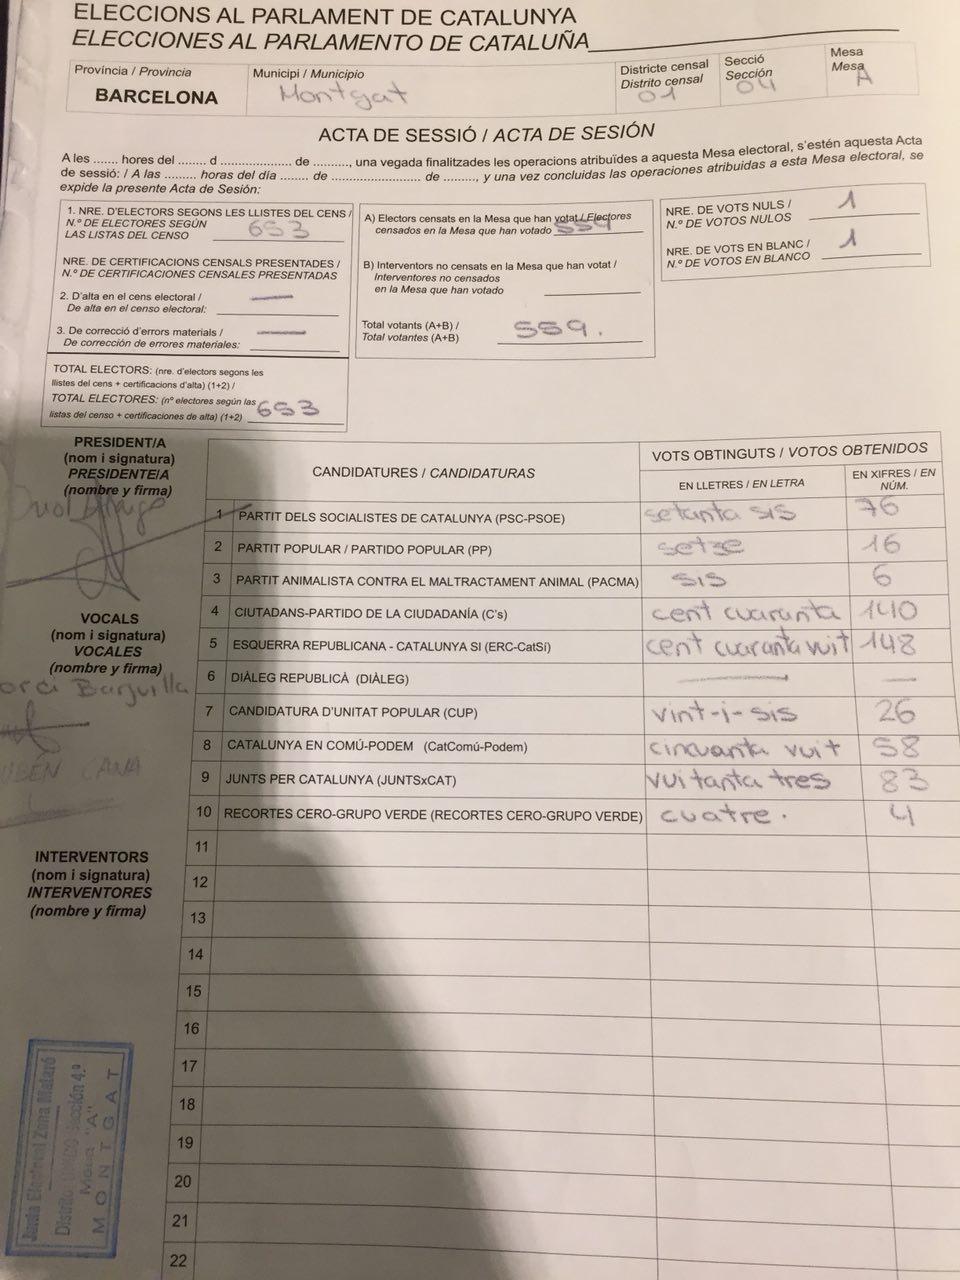 ELECCIONS AL PARLAMENT DE CATALUNYA
ELECCIONES AL PARLAMENTO DE CATALUÑA
Província / Provincia
BARCELONA
Municipi / Municipio
Montgat
Districte censal
Distrito censal
01
Secció
Sección
04
Mesa
Mesa
A
ACTA DE SESSIÓ / ACTA DE SESIÓN
A les ....... hores del ........ d .................... de .........., una vegada finalitzades les operacions atribuïdes a aquesta Mesa electoral, s'estén aquesta Acta
de sessió: / A las ......... horas del día ........ de ......................... de ........., y una vez concluidas las operaciones atribuidas a esta Mesa electoral, se
expide la presente Acta de Sesión:
1. NRE. D'ELECTORS SEGONS LES LLISTES DEL CENS /
N.º DE ELECTORES SEGÚN
LAS LISTAS DEL CENSO 653
NRE. DE CERTIFICACIONS CENSALS PRESENTADES /
N.º DE CERTIFICACIONES CENSALES PRESENTADAS
2. D'alta en el cens electoral / —
De alta en el censo electoral:
3. De correcció d'errors materials / —
De corrección de errores materiales:
TOTAL ELECTORS: (nre. d'electors segons les
llistes del cens + certificacions d'alta) (1+2) /
TOTAL ELECTORES: (nº electores según las
listas del censo + certificaciones de alta) (1+2) 653
A) Electors censats en la Mesa que han votat / Electores
censados en la Mesa que han votado 559
B) Interventors no censats en la Mesa que han votat /
Interventores no censados
en la Mesa que han votado
Total votants (A+B) /
Total votantes (A+B) 559.
NRE. DE VOTS NULS /
N.º DE VOTOS NULOS 1
NRE. DE VOTS EN BLANC /
N.º DE VOTOS EN BLANCO 1
PRESIDENT/A
(nom i signatura)
PRESIDENTE/A
(nombre y firma)
VOCALS
(nom i signatura)
VOCALES
(nombre y firma)
INTERVENTORS
(nom i signatura)
INTERVENTORES
(nombre y firma)
CANDIDATURES / CANDIDATURAS
VOTS OBTINGUTS / VOTOS OBTENIDOS
EN LLETRES / EN LETRA
EN XIFRES / EN NÚM.
1 PARTIT DELS SOCIALISTES DE CATALUNYA (PSC-PSOE) setanta sis 76
2 PARTIT POPULAR / PARTIDO POPULAR (PP) setze 16
3 PARTIT ANIMALISTA CONTRA EL MALTRACTAMENT ANIMAL (PACMA) sis 6
4 CIUTADANS-PARTIDO DE LA CIUDADANÍA (C's) cent cuaranta 140
5 ESQUERRA REPUBLICANA - CATALUNYA SÍ (ERC-CatSí) cent cuaranta vuit 148
6 DIÀLEG REPUBLICÀ (DIÀLEG) — —
7 CANDIDATURA D'UNITAT POPULAR (CUP) vint-i-sis 26
8 CATALUNYA EN COMÚ-PODEM (CatComú-Podem) cincuanta vuit 58
9 JUNTS PER CATALUNYA (JUNTSxCAT) vuitanta tres 83
10 RECORTES CERO-GRUPO VERDE (RECORTES CERO-GRUPO VERDE) cuatre. 4
11
12
13
14
15
16
17
18
19
20
21
22
Junta Electoral Zona Mataró
Distrito Sección 4.ª
Mesa "A"
MONTGAT